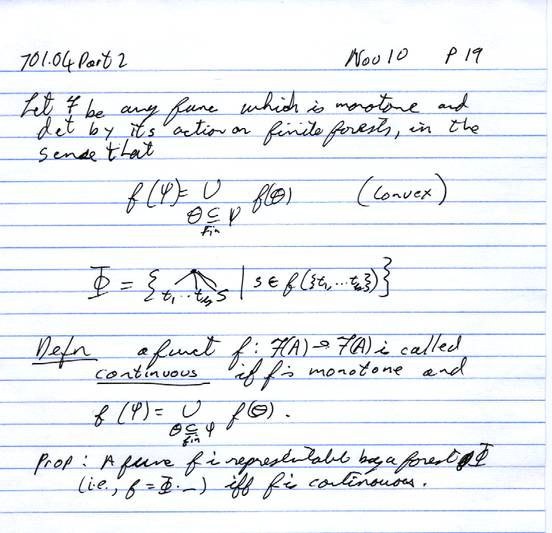 701.04 Part 2 Nov 10 P 19
Let f be any func which is monotone and
det by its action on finite forests, in the
sense that
f(φ) = ∪ f(θ) (convex)
θ ⊆ φ
fin
Φ = { t₁ ... tₖ s | s ∈ f({t₁, ... tₖ}) }
Defn a funct f : F(A) → F(A) is called
continuous if f is monotone and
f(φ) = ∪ f(θ).
θ ⊆ φ
fin
Prop : A func f is representable by a forest Φ
(i.e., f = Φ·_) iff f is continuous.